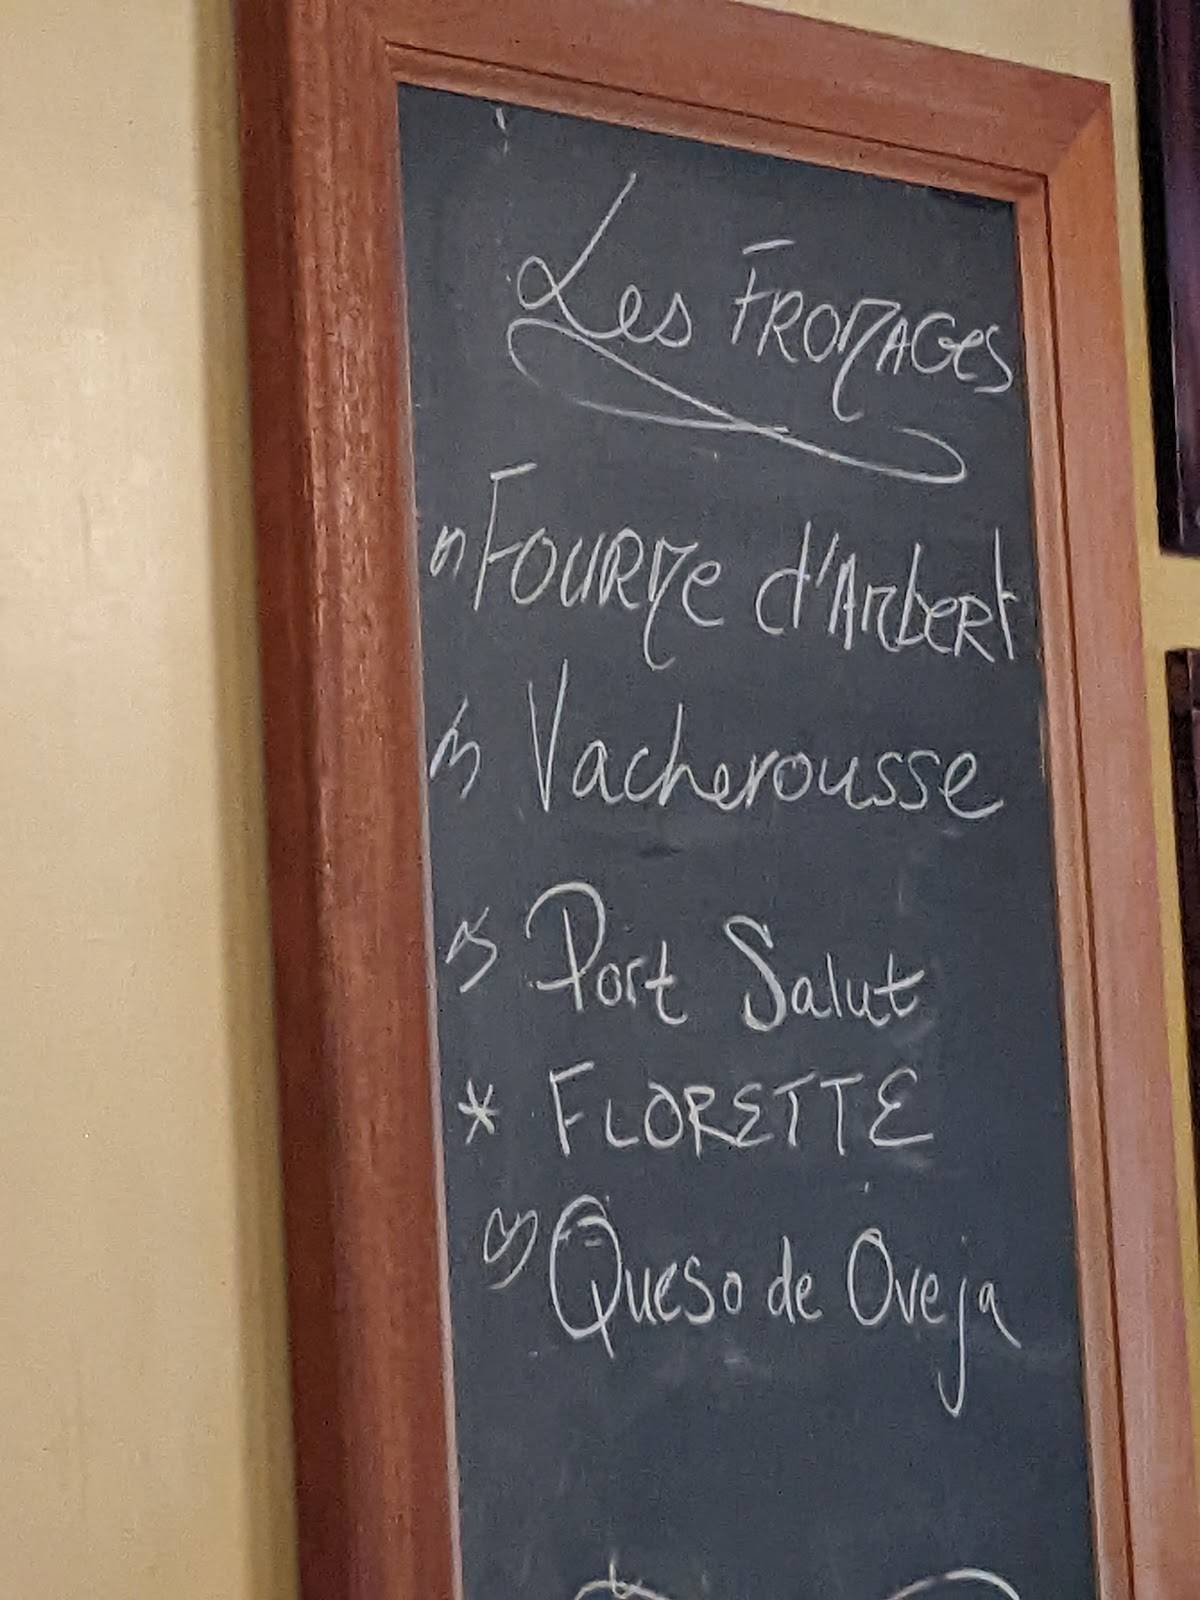 Les FROMAGes
FOURMe d'AmbeRt
Vacherousse
Port Salut
* FLORETTE
Queso de Oveja